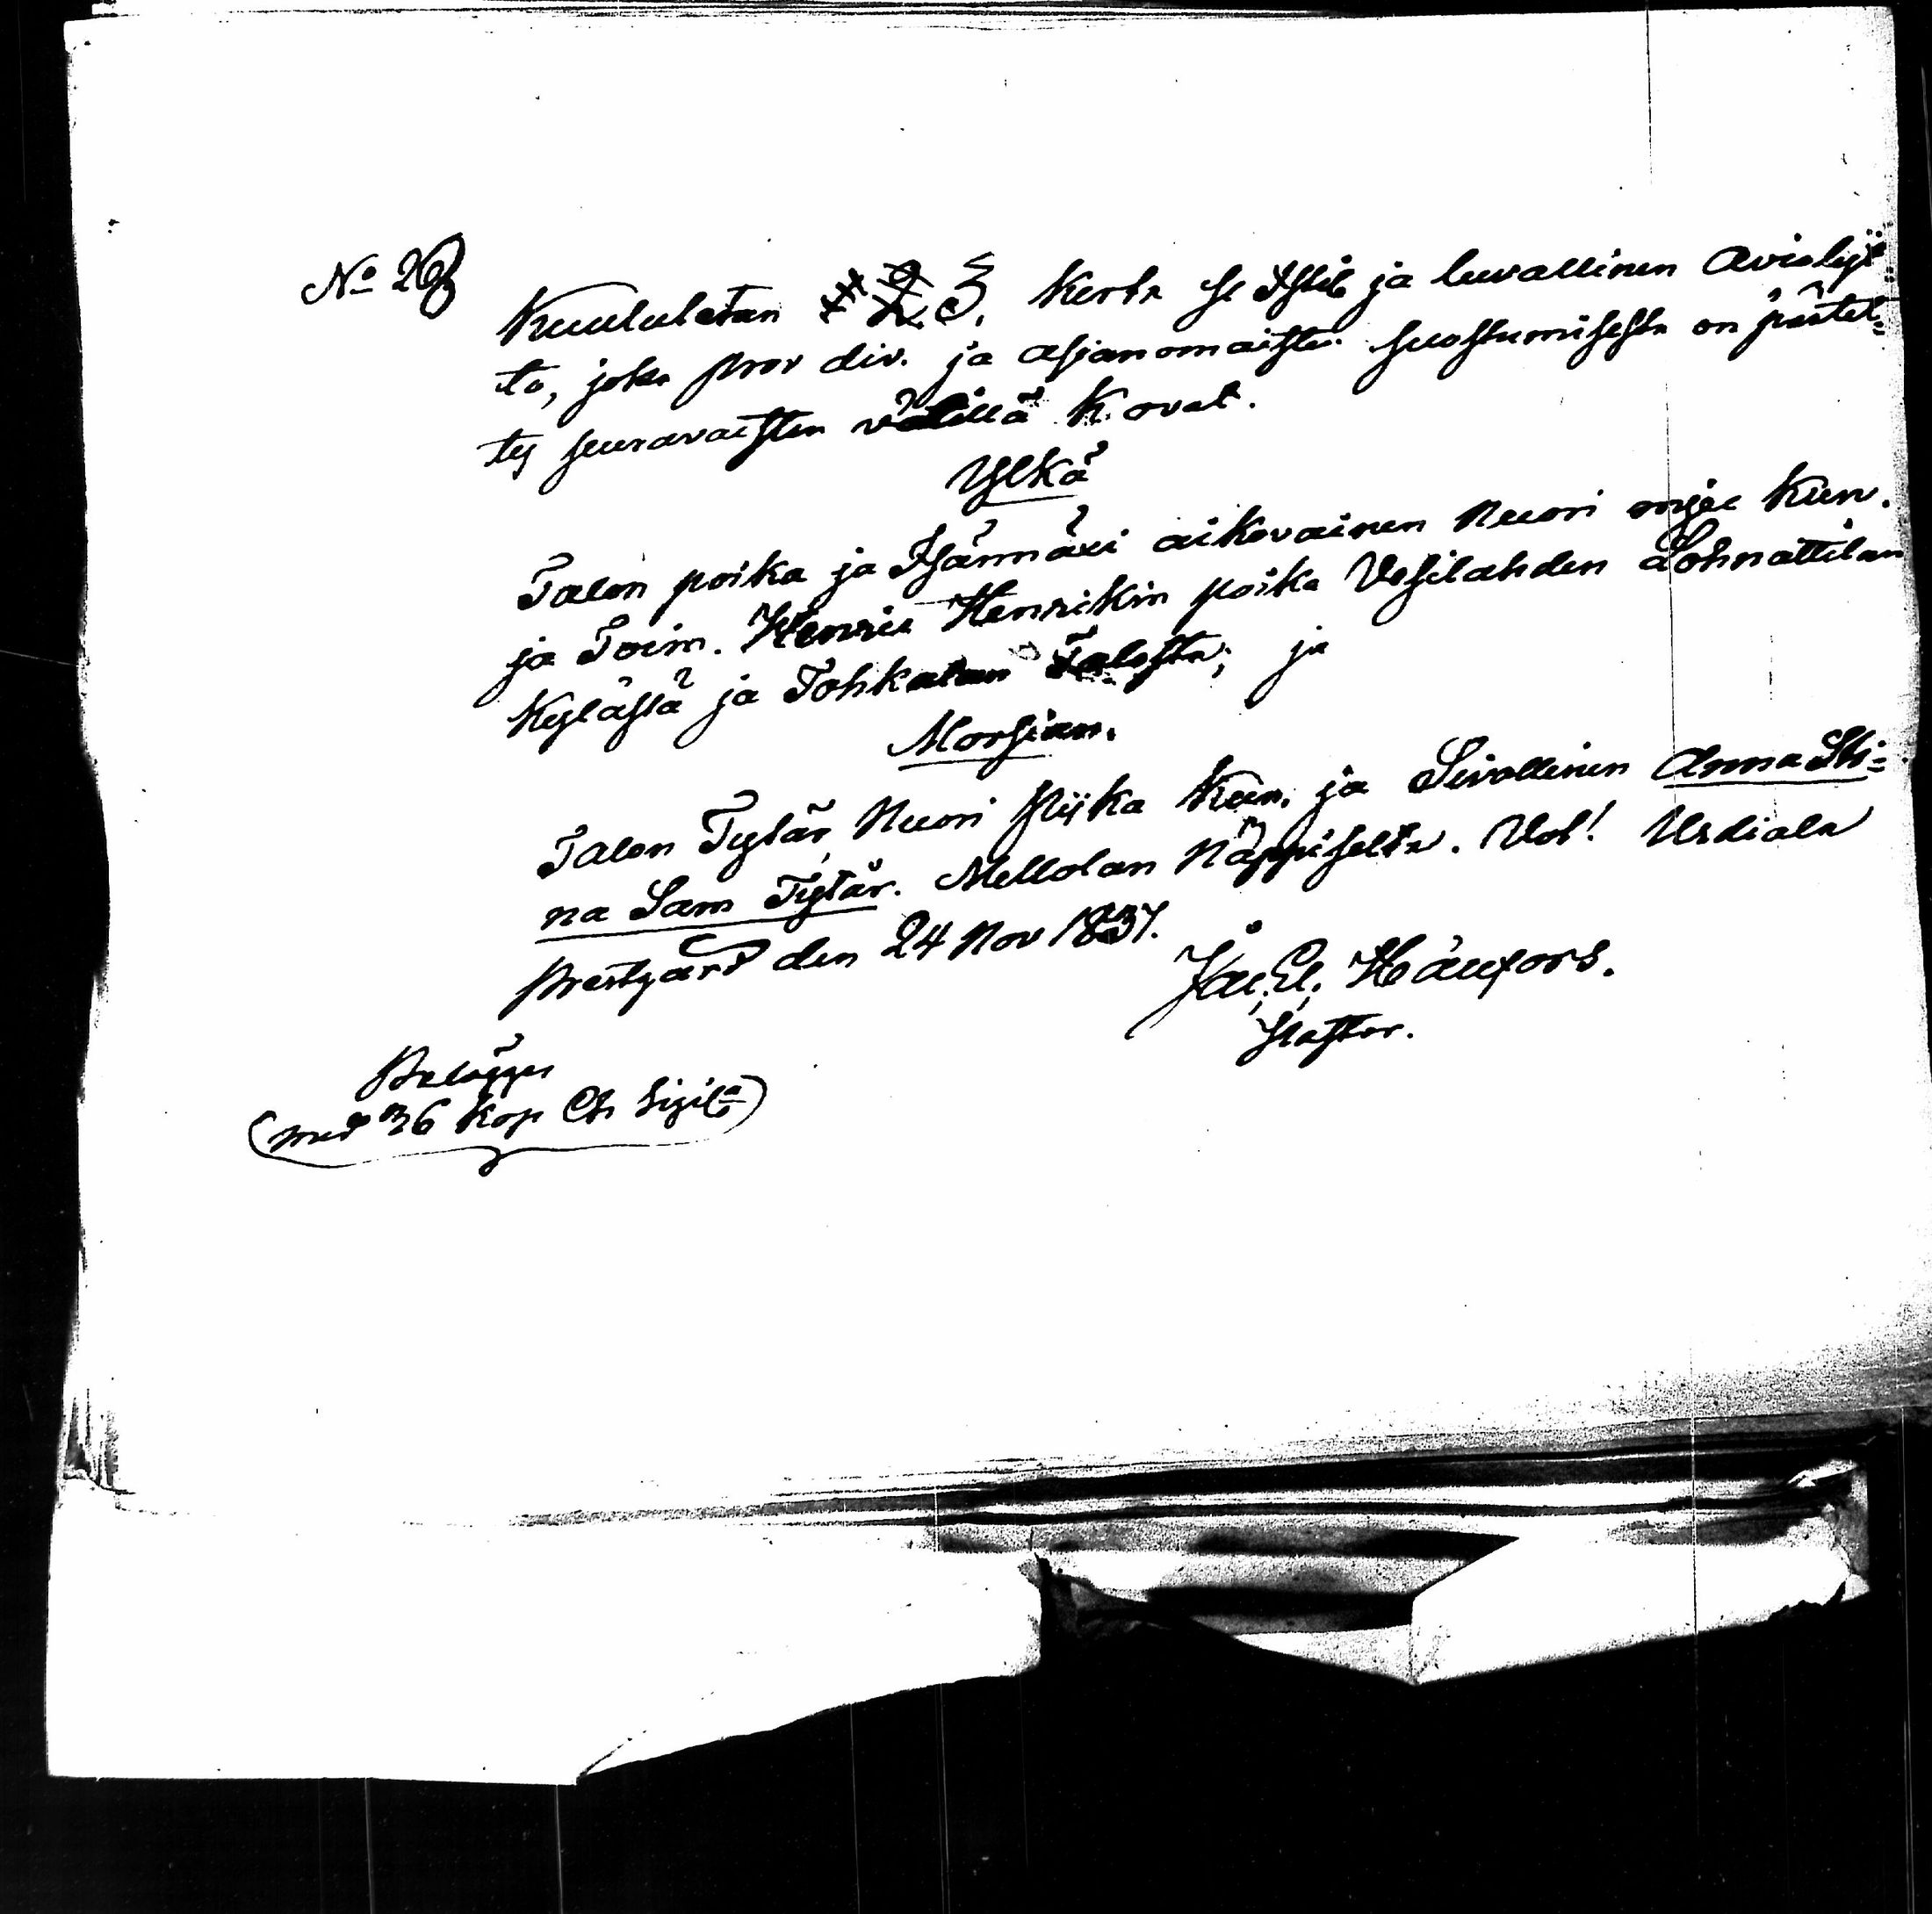 No 28
Kuulutetan 3, kerta se ja luvallinen Aviolijt:
to, joka prov div. ja asjanomaisten suostumisesta on päätet=
ty seuravaisten välillä k. ovat.
Ylkä
Talon poika ja Isännäxi aikovainen Nuori mjes kun.
ja Toim. Henric Henrikin poika Vesilahden Sohnattilan
Kylästä ja Tohkatan Talosta, ja
Morsian.
Talon Tytär, Nuori pijka kun. ja Sivollinen Anna Sti=
na Sam Tytär. Mellolan Näppiseltä. Urdiala
Prestgård den 24 Nov 1837.
Jac. El. Häufors.
Pastor.
Belägges
(med 36 kop Ch Sigill)